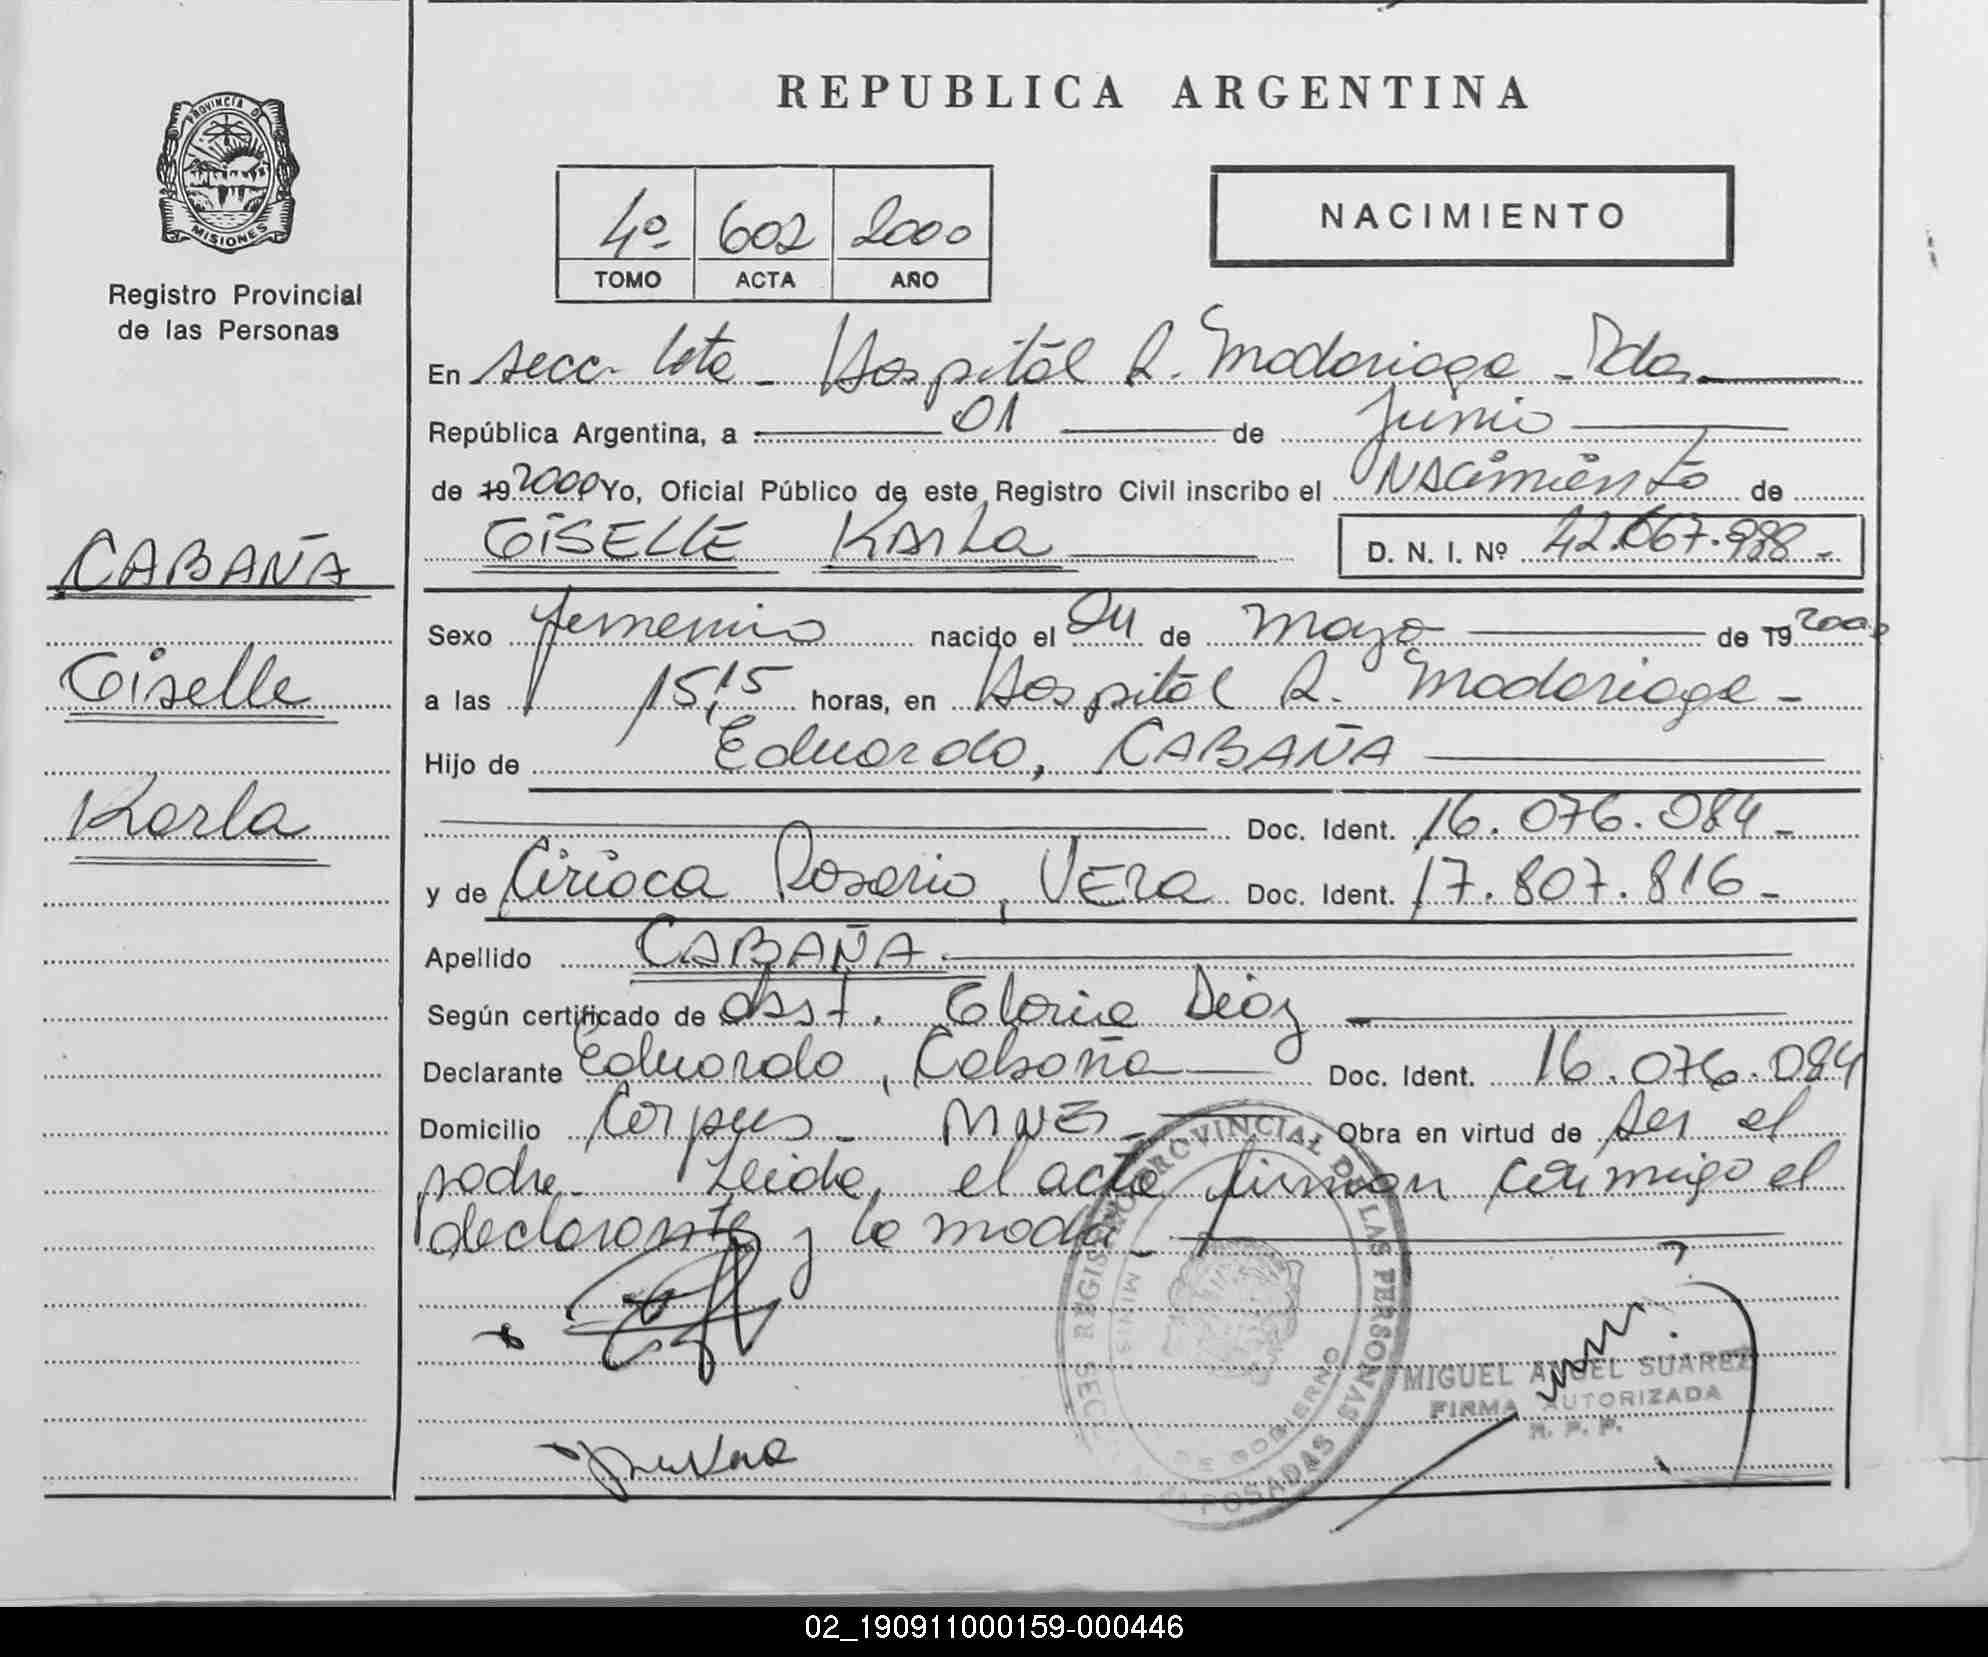 PROVINCIA DE
MISIONES
Registro Provincial
de las Personas
CABAÑA
Giselle
Karla
REPUBLICA ARGENTINA
4º 602 2000
TOMO ACTA AÑO
NACIMIENTO
En secc. 1ota - Hospital R. Madariaga - Pdas.
República Argentina, a 01 de Junio
de 19 2000 Yo, Oficial Público de este Registro Civil inscribo el Nacimiento de
GISELLE KARLA D. N. I. Nº 42.667.988.-
Sexo femenino nacido el 24 de mayo de 19 2000
a las 15,15 horas, en Hospital R. Madariaga -
Hijo de Eduardo, CABAÑA
Doc. Ident. 16.076.084 -
y de Ciriaca Rosario, VERA Doc. Ident. 17.807.816 -
Apellido CABAÑA.
Según certificado de obst. Gloria Diaz
Declarante Eduardo, Cabaña Doc. Ident. 16.076.084
Domicilio Corpus - MNES - Obra en virtud de ser el
padre. Leida, el acta firman conmigo el
declarante y la madre -
REGISTRO PROVINCIAL DE LAS PERSONAS
DE GOBIERNO
POSADAS
MIGUEL ANGEL SUAREZ
FIRMA AUTORIZADA
R. P. P.
02_190911000159-000446